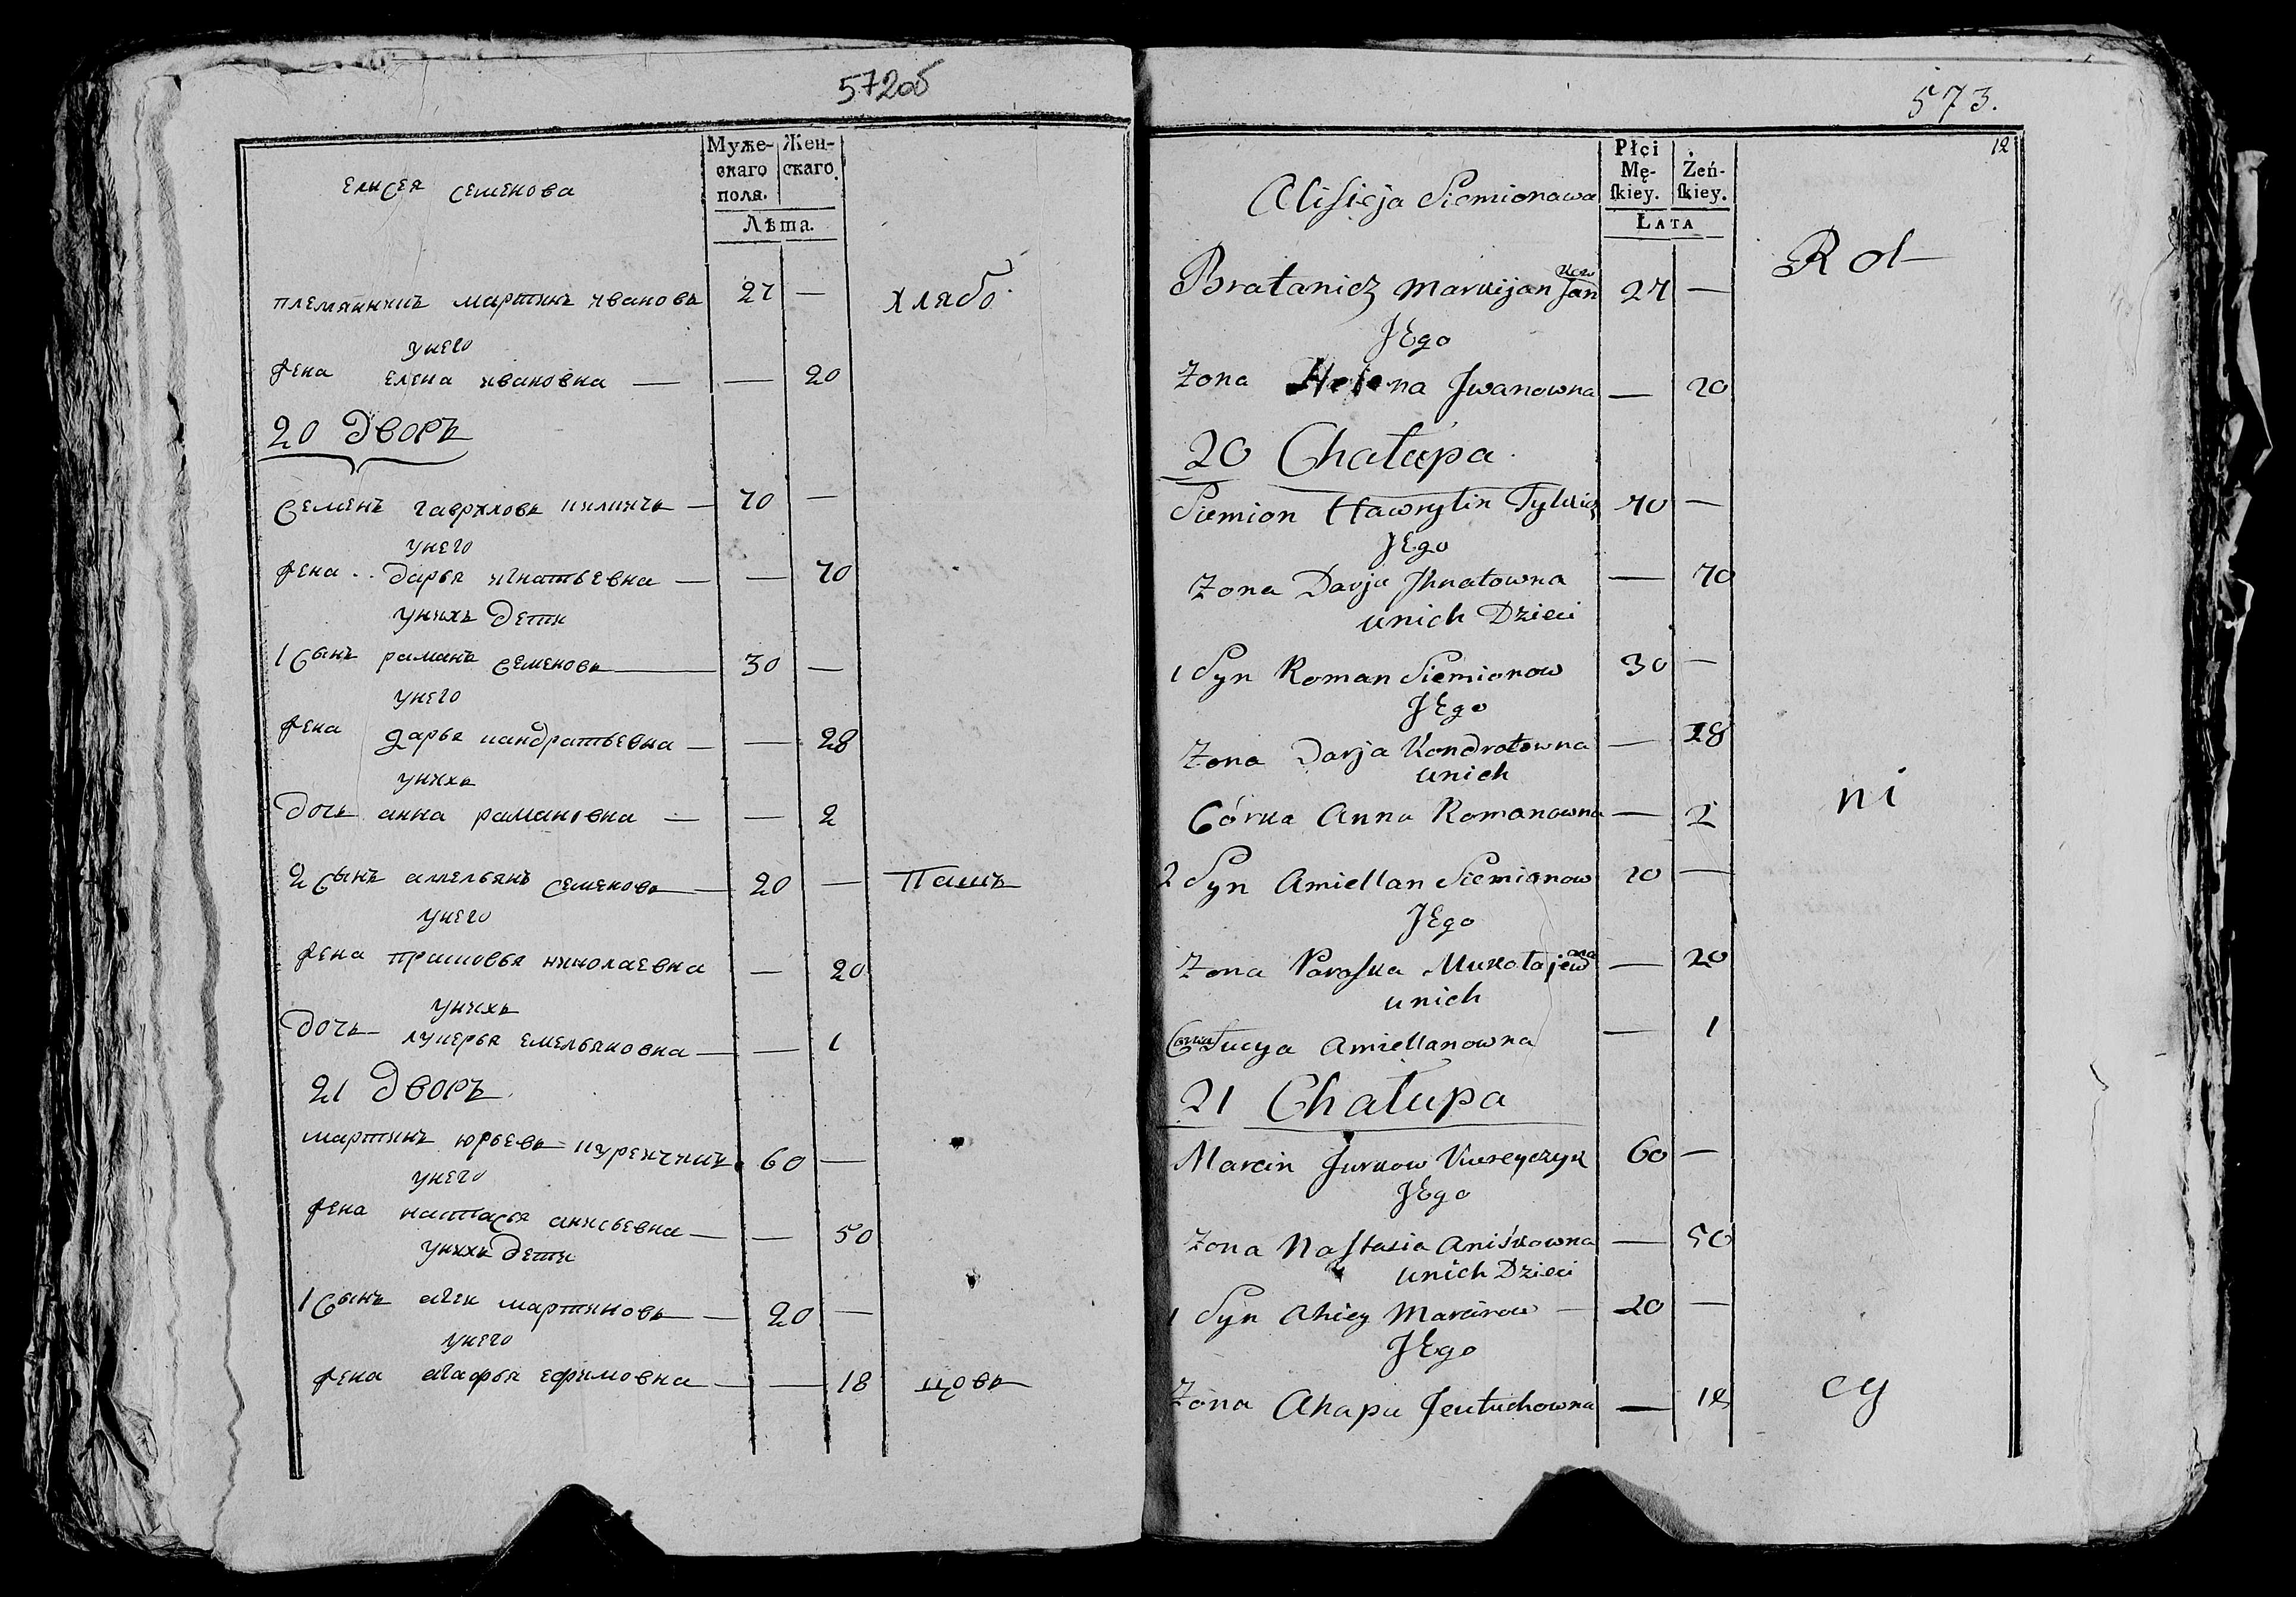 572об
Муже-
скаго
пола.
Жен-
скаго.
Лѣта.
елисея семенова
племянникъ мартинъ ивановъ 27 — хлябо
унего
жена елена ивановна — — 20
20 дворъ
семенъ гавриловъ — 70 —
унего
жена .. дарья игнатьевна — — 70
унихъ дети
1 сынъ раманъ семеновъ 30 —
унего
жена дарья кандратьевна — — 28
унихъ
дочь анна рамановна — — 2
2 сынъ амельянъ семеновъ 20 — Пашъ
унего
жена прасковья николаевна — 20
унихъ
дочь лукерья емельяновна — — 1
21 дворъ
мартинъ юрьевъ курейчикъ 60 —
унего
жена настасья анисьевна — — 50
унихъ дети
1 сынъ агей мартиновъ — 20 —
унего
жена агафья ефимовна — — 18 цовъ
573.
12
Płci
Mę-
ſkiey.
Żeń-
ſkiey.
Lata
Alisieja Siemionawa
Rol
Bratanicz Markijan Jan 27 —
JEgo
Zona Helena Jwanowna — 20
20 Chałupa
Siemion Hawrylin 70 —
JEgo
Zona Darja Jhnatowna — 70
unich Dzieci
1 Syn Roman Siemionow 30 —
JEgo
Zona Darja Kondratowna — 28
unich
Córka Anna Romanowna — 2
ni
2 Syn Amiellan Siemionow 20 —
JEgo
Zona Paraska Mikołajewna — 20
unich
Corka Łucya Amiellanowna — 1
21 Chałupa
Marcin Jurkow Kureyczyk 60 —
JEgo
Zona Nastazia Aniśkowna — 50
unich Dzieci
1 Syn Ahiey Marcinow — 20 —
JEgo
Zona Ahapa Jeutuchowna — 18
cy